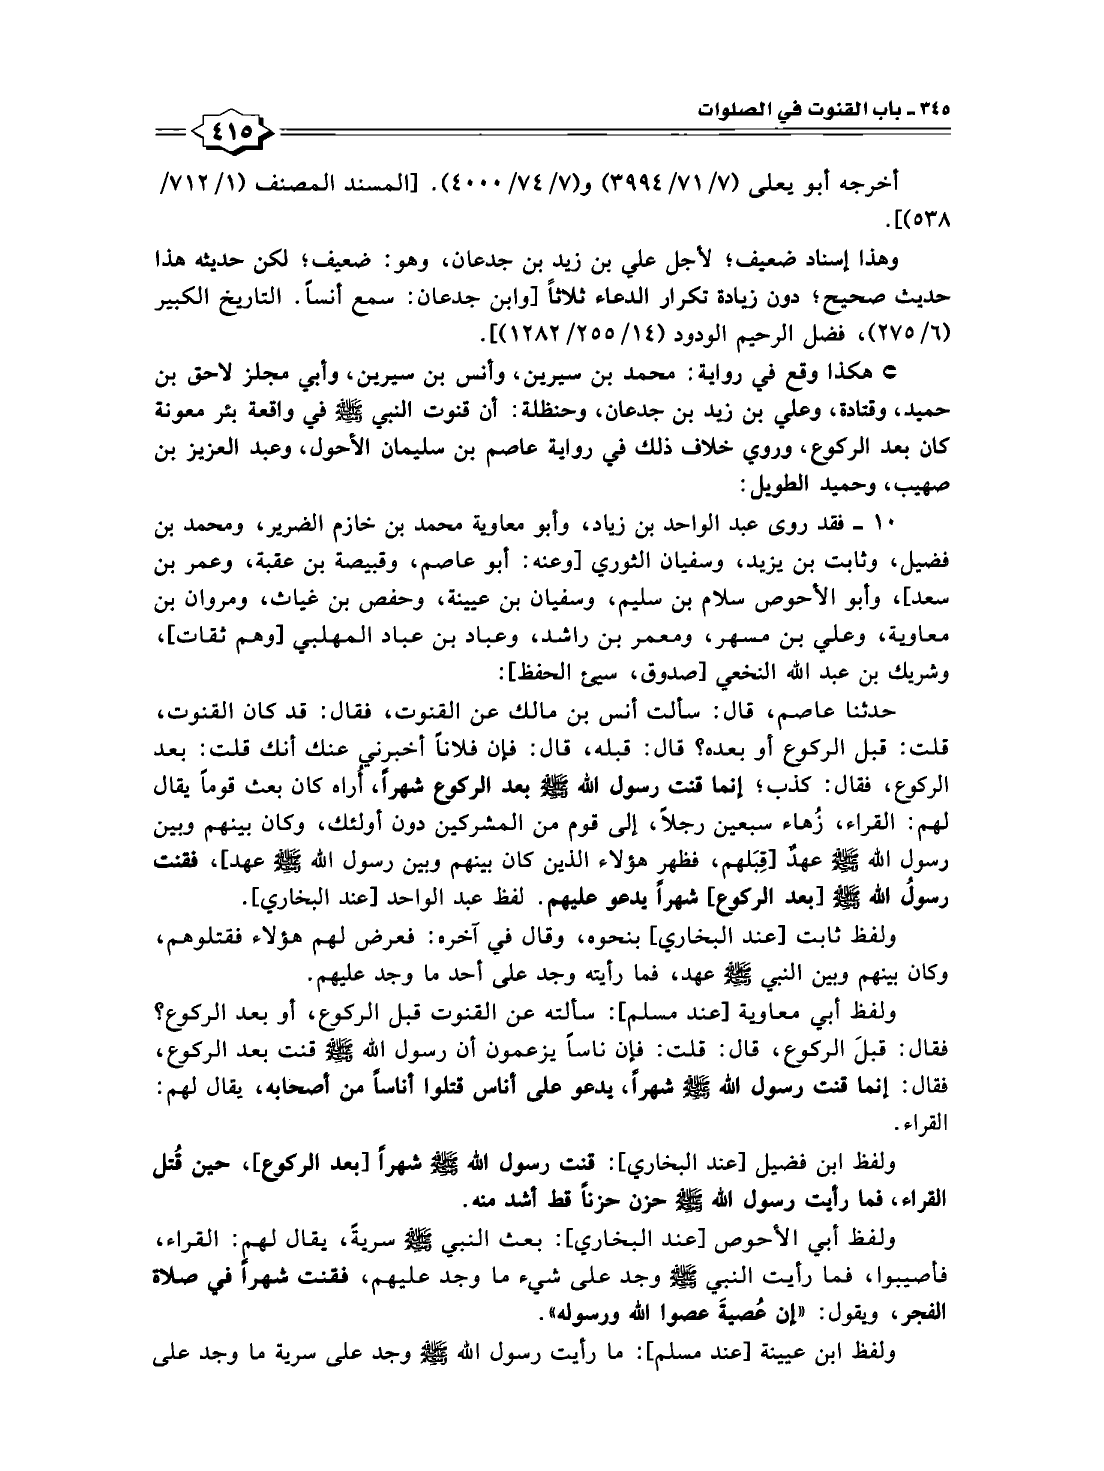 ٣٤٥ ـ باب القنوت في الصلوات
٤١٥
أخرجه أبو يعلى (٣٩٩٤/٧١/٧) و(٤٠٠٠/٧٤/٧). [المسند المصنف (٧١٢/١/
٥٣٨)].
وهذا إسناد ضعيف؛ لأجل علي بن زيد بن جدعان، وهو: ضعيف؛ لكن حديثه هذا
حديث صحيح؛ دون زيادة تكرار الدعاء ثلاثاً [وابن جدعان: سمع أنساً. التاريخ الكبير
(٢٧٥/٦)، فضل الرحيم الودود (١٢٨٢/٢٥٥/١٤)].
هكذا وقع في رواية: محمد بن سيرين، وأنس بن سيرين، وأبي مجلز لاحق بن
حميد، وقتادة، وعلي بن زيد بن جدعان، وحنظلة: أن قنوت النبي ﷺ في واقعة بئر معونة
كان بعد الركوع، وروي خلاف ذلك في رواية عاصم بن سليمان الأحول، وعبد العزيز بن
صهيب، وحميد الطويل:
١٠ ـ فقد روى عبد الواحد بن زياد، وأبو معاوية محمد بن خازم الضرير، ومحمد بن
فضيل، وثابت بن يزيد، وسفيان الثوري [وعنه: أبو عاصم، وقبيصة بن عقبة، وعمر بن
سعد]، وأبو الأحوص سلام بن سليم، وسفيان بن عيينة، وحفص بن غياث، ومروان بن
معاوية، وعلي بن مسهر، ومعمر بن راشد، وعباد بن عباد المهلبي [وهم ثقات]،
وشريك بن عبد الله النخعي [صدوق، سيئ الحفظ]:
حدثنا عاصم، قال: سألت أنس بن مالك عن القنوت، فقال: قد كان القنوت،
قلت: قبل الركوع أو بعده؟ قال: قبله، قال: فإن فلاناً أخبرني عنك أنك قلت: بعد
الركوع، فقال: كذب؛ إنما قنت رسول الله ﷺ بعد الركوع شهراً، أُراه كان بعث قوماً يقال
لهم: القراء، زُهاء سبعين رجلاً، إلى قوم من المشركين دون أولئك، وكان بينهم وبين
رسول الله ﷺ عهدٌ [قِبَلهم، فظهر هؤلاء الذين كان بينهم وبين رسول الله ﷺ عهد]، فقنت
رسولُ الله ﷺ [بعد الركوع] شهراً يدعو عليهم. لفظ عبد الواحد [عند البخاري].
ولفظ ثابت [عند البخاري] بنحوه، وقال في آخره: فعرض لهم هؤلاء فقتلوهم،
وكان بينهم وبين النبي ﷺ عهد، فما رأيته وجد على أحد ما وجد عليهم.
ولفظ أبي معاوية [عند مسلم]: سألته عن القنوت قبل الركوع، أو بعد الركوع؟
فقال: قبلَ الركوع، قال: قلت: فإن ناساً يزعمون أن رسول الله ﷺ قنت بعد الركوع،
فقال: إنما قنت رسول الله ﷺ شهراً، يدعو على أناس قتلوا أناساً من أصحابه، يقال لهم:
القراء.
ولفظ ابن فضيل [عند البخاري]: قنت رسول الله ﷺ شهراً [بعد الركوع]، حين قُتل
القراء، فما رأيت رسول الله ﷺ حزن حزناً قط أشد منه.
ولفظ أبي الأحوص [عند البخاري]: بعث النبي ﷺ سريةً، يقال لهم: القراء،
فأصيبوا، فما رأيت النبي ﷺ وجد على شيء ما وجد عليهم، فقنت شهراً في صلاة
الفجر، ويقول: «إن عُصيةَ عصوا الله ورسوله».
ولفظ ابن عيينة [عند مسلم]: ما رأيت رسول الله ﷺ وجد على سرية ما وجد على